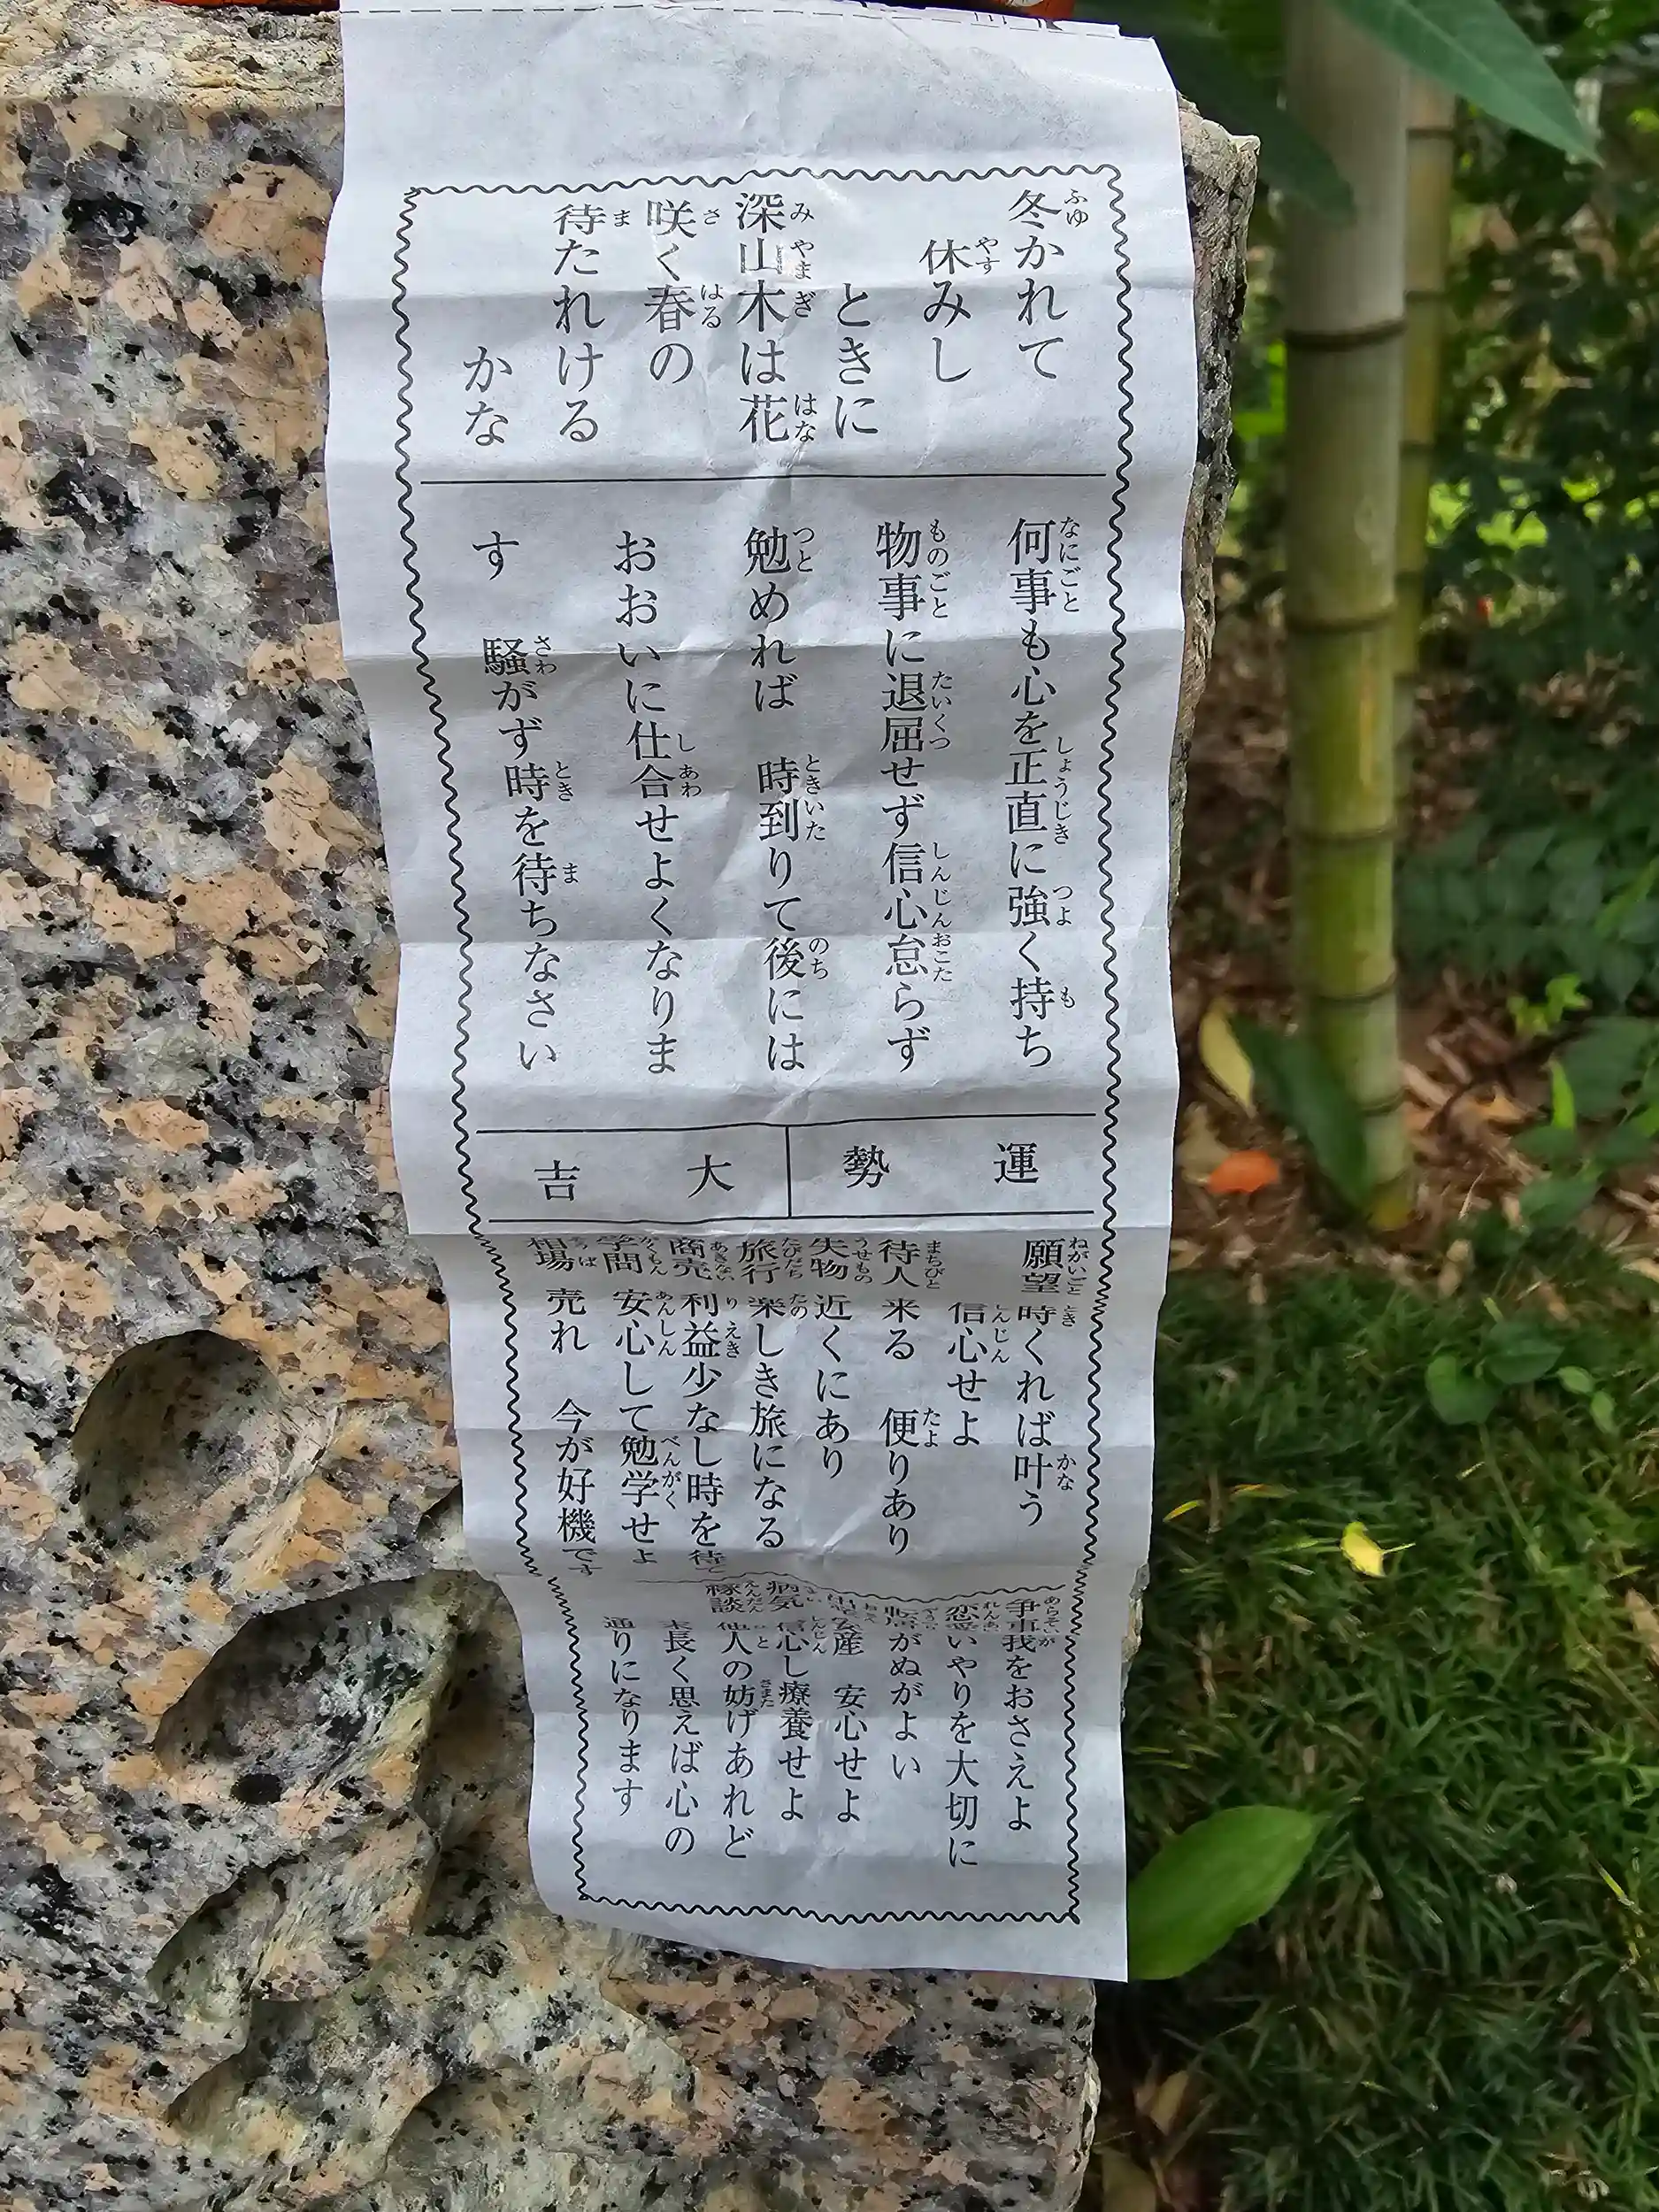 冬かれて
休みし
ときに
深山木は花
咲く春の
待たれける
かな
何事も心を正直に強く持ち
物事に退屈せず信心怠らず
勉めれば 時到りて後には
おおいに仕合せよくなりま
す 騒がず時を待ちなさい
運勢 大吉
願望 時くれば叶う
信心せよ
待人 来る 便りあり
失物 近くにあり
旅行 楽しき旅になる
商売 利益少なし時を待て
学問 安心して勉学せよ
相場 売れ 今が好機です
争事 我をおさえよ
恋愛 いやりを大切に
がぬがよい
安産 安心せよ
病気 信心し療養せよ
縁談 他人の妨げあれど
末長く思えば心の
通りになります